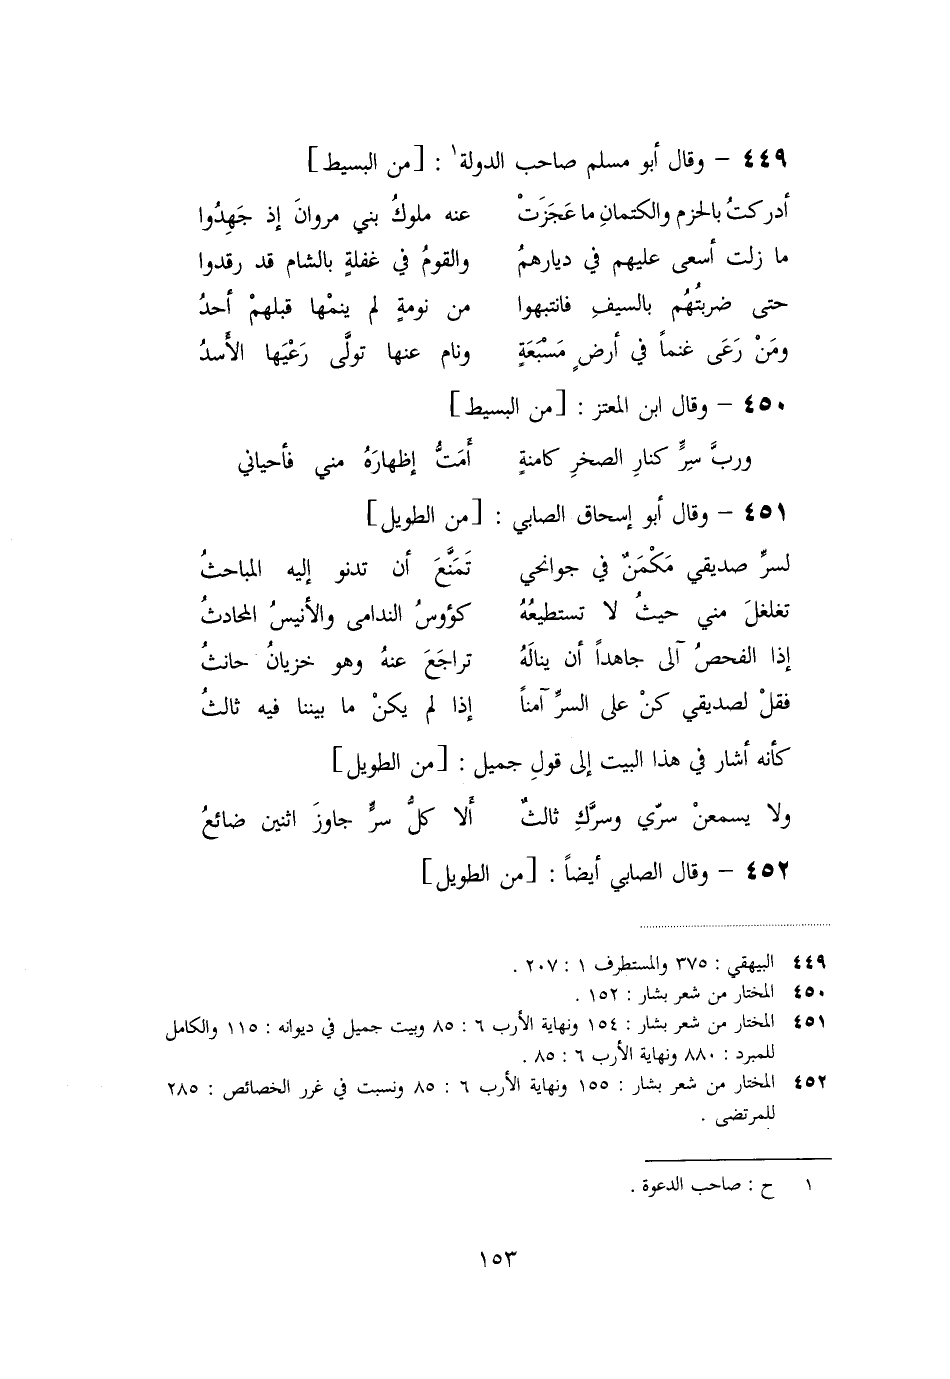 ٤٤٩ – وقال أبو مسلم صاحب الدولة١ : [من البسيط]
أدركتُ بالحزم والكتمانِ ما عَجَزَتْ عنه ملوكُ بني مروانَ إذ جَهِدُوا
ما زلت أسعى عليهم في ديارهمُ والقومُ في غفلةٍ بالشام قد رقدوا
حتى ضربتُهُم بالسيفِ فانتبهوا من نومةٍ لم ينمْها قبلهمْ أحدُ
ومَنْ رَعَى غنماً في أرضٍ مَسْبَعَةٍ ونام عنها تولَّى رَعْيَها الأَسدُ
٤٥٠ – وقال ابن المعتز : [من البسيط]
وربَّ سِرٍّ كنارِ الصخرِ كامنةٍ أَمَتُّ إظهارَهُ مني فأحياني
٤٥١ – وقال أبو إسحاق الصابي : [من الطويل]
لسرِّ صديقي مَكْمَنٌ في جوانحي تَمَنَّعَ أن تدنو إليه المباحثُ
تغلغلَ مني حيثُ لا تستطيعُهُ كؤوسُ الندامى والأنيسُ المحادثُ
إذا الفحصُ آلى جاهداً أن ينالَهُ تراجَعَ عنهُ وهو خزيانُ حانثُ
فقلْ لصديقي كنْ على السرِّ آمناً إذا لم يكنْ ما بيننا فيه ثالثُ
كأنه أشار في هذا البيت إلى قولِ جميل : [من الطويل]
ولا يسمعنْ سرّي وسرَّكِ ثالثٌ أَلا كلُّ سرٍّ جاوزَ اثنين ضائعُ
٤٥٢ – وقال الصابي أيضاً : [من الطويل]
٤٤٩ البيهقي : ٣٧٥ والمستطرف ١ : ٢٠٧ .
٤٥٠ المختار من شعر بشار : ١٥٢ .
٤٥١ المختار من شعر بشار : ١٥٤ ونهاية الأرب ٦ : ٨٥ وبيت جميل في ديوانه : ١١٥ والكامل
للمبرد : ٨٨٠ ونهاية الأرب ٦ : ٨٥ .
٤٥٢ المختار من شعر بشار : ١٥٥ ونهاية الأرب ٦ : ٨٥ ونسبت في غرر الخصائص : ٢٨٥
للمرتضى .
١ ح : صاحب الدعوة .
١٥٣